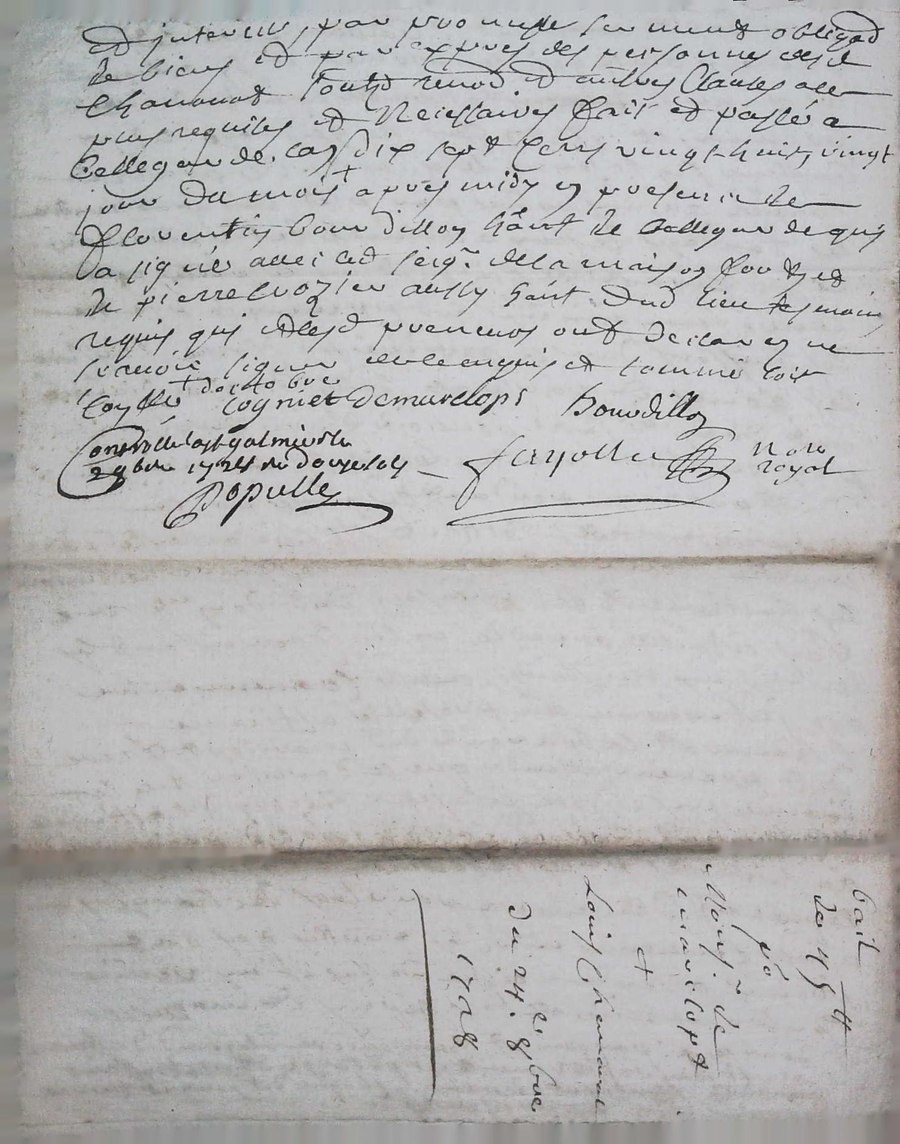 et interest, par promesse serment obligad
de biens et par expres des personnes desd
Chavanat soubz renod et autres Clauses a ce
plus requises et Necessaires fait et passé a
Bellegarde. dix sept Cens vingt huit, vingt
jour du mois + apres midy en presence de
florentin bourdillon hãnt de Bellegarde quy
a signé avec led seigr. de la maison fort et
de pierre aussy hãnt dud lieu tesmoins
requis quy et led preneurs ont declaré ne
scavoir signer de ce enquis et sommé
+ doctobre
Cogniet Demarclops Bourdillon
Controllé a St galmier le
28bre 1728 Rx douze sols
Populle
fayolle Nore
royal
bail
de 45 ₶
po
Monsr. de
marclopt
+
Louis Chavanat
du 24.e 8bre
1728